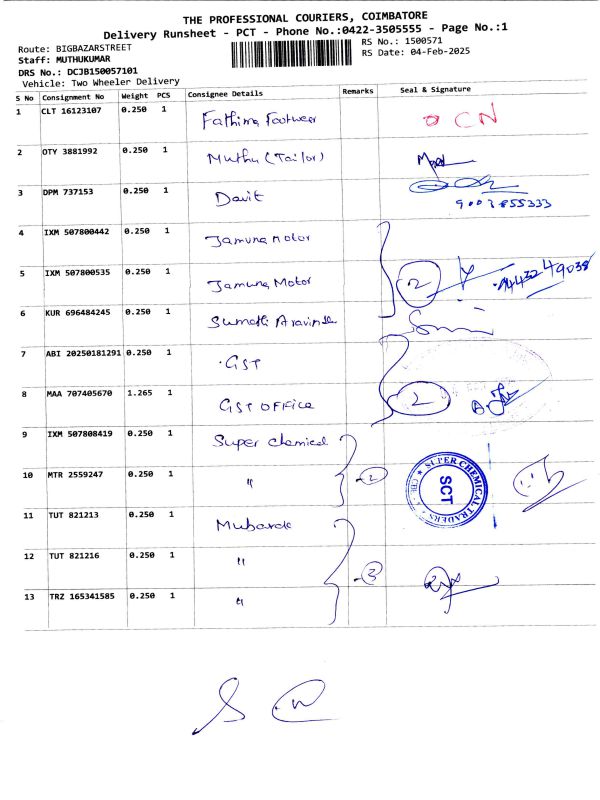 THE PROFESSIONAL COURIERS, COIMBATORE
Delivery Runsheet - PCT - Phone No.:0422-3505555 - Page No.:1
Route: BIGBAZARSTREET
RS No.: 1500571
Staff: MUTHUKUMAR
RS Date: 04-Feb-2025
DRS No.: DCJB150057101
Vehicle: Two Wheeler Delivery
S No Consignment No Weight PCS Consignee Details Remarks Seal & Signature
1 CLT 16123107 0.250 1 Fathima Footwear CN
2 OTY 3881992 0.250 1 Muthu (Tailor)
3 DPM 737153 0.250 1 David
9003855333
4 IXM 507800442 0.250 1 Jamuna motor
5 IXM 507800535 0.250 1 Jamuna Motor 2
6 KUR 696484245 0.250 1 Sumathi
7 ABI 20250181291 0.250 1 GST
8 MAA 707405670 1.265 1 GST OFFICE 2
9 IXM 507808419 0.250 1 Super chemical
10 MTR 2559247 0.250 1 " 2 SUPER CHEMICAL TRADERS SCT
11 TUT 821213 0.250 1 Mubarak
12 TUT 821216 0.250 1 " 3
13 TRZ 165341585 0.250 1 "